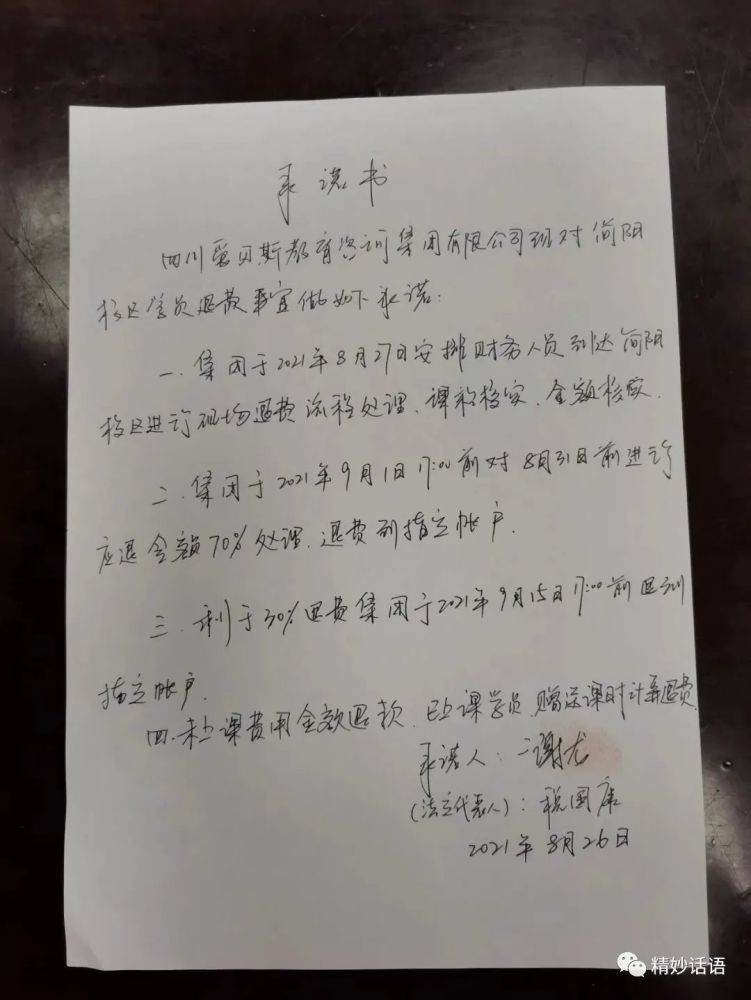 承诺书
四川爱贝斯教育咨询集团有限公司现对简阳
校区学员退费事宜做如下承诺:
一、集团于2021年8月27日安排财务人员到达简阳
校区进行现场退费流程处理、课程核实、金额核实.
二、集团于2021年9月1日17:00前对8月31日前进行
应退金额70%处理、退费到指定帐户.
三、剩于30%退费集团于2021年9月15日17:00前退到
指定帐户.
四、未上课费用全额退款、已上课学员、赠送课时计算退费.
承诺人:谢尤
(法定代表人):税国康
2021年8月26日
精妙话语